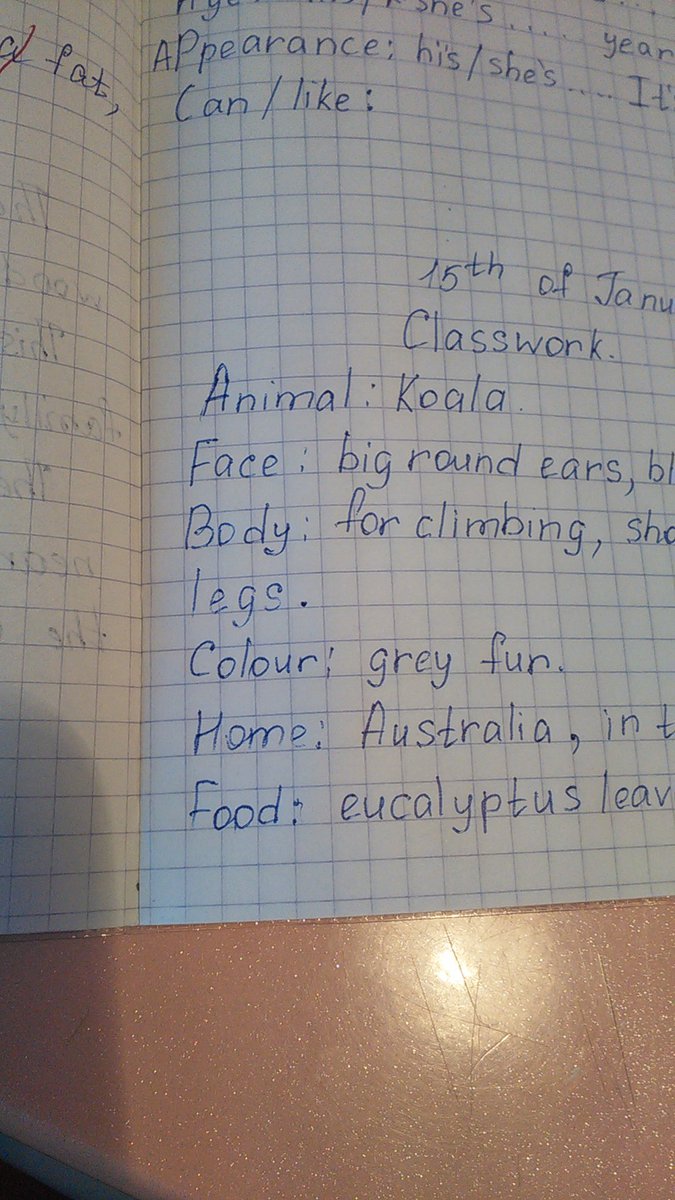 she's.... year
Appearance: his/she's..... It
fat,
Can/like:
15th of Janu
Classwork.
Animal: Koala.
Face: big round ears, bl
Body: for climbing, sho
legs.
Colour: grey fur.
Home: Australia, in t
Food: eucalyptus leav